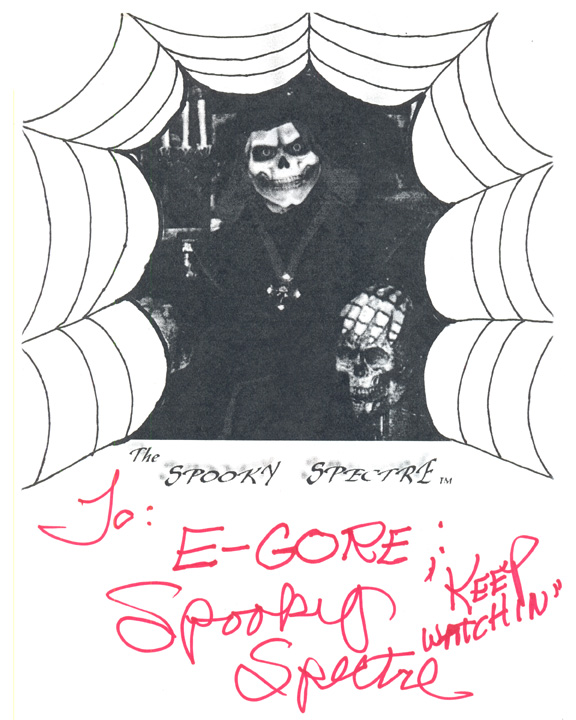 The
SPOOKY SPECTRE™
To:
E-GORE;
Spooky
Spectre
"KEEP
WATCHIN"